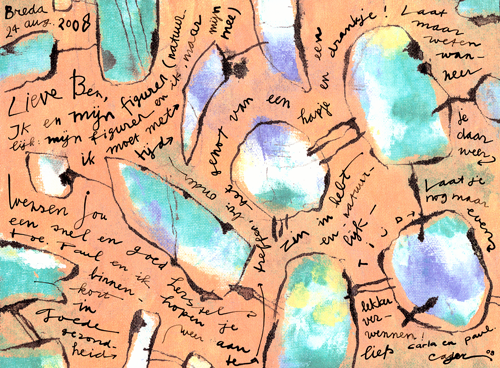 Breda
24 aug. 2008
Lieve Ben,
Ik en mijn figuren (natuur-
lijk: mijn figuren en ik maar
ik moet met mijn
tijd mee)
wensen jou
een snel en goed herstel
toe. Paul en ik hopen je
binnen- weer aan te
kort
in
goede
gezond-
heid
treffen in het
genot van een hapje
en een drankje!
Laat
maar
weten
wan-
neer
je
daar
weer
zin in hebt
en natuur-
lijk
Laat je
nog maar
even
lekker
ver-
wennen!
liefs Carla en Paul